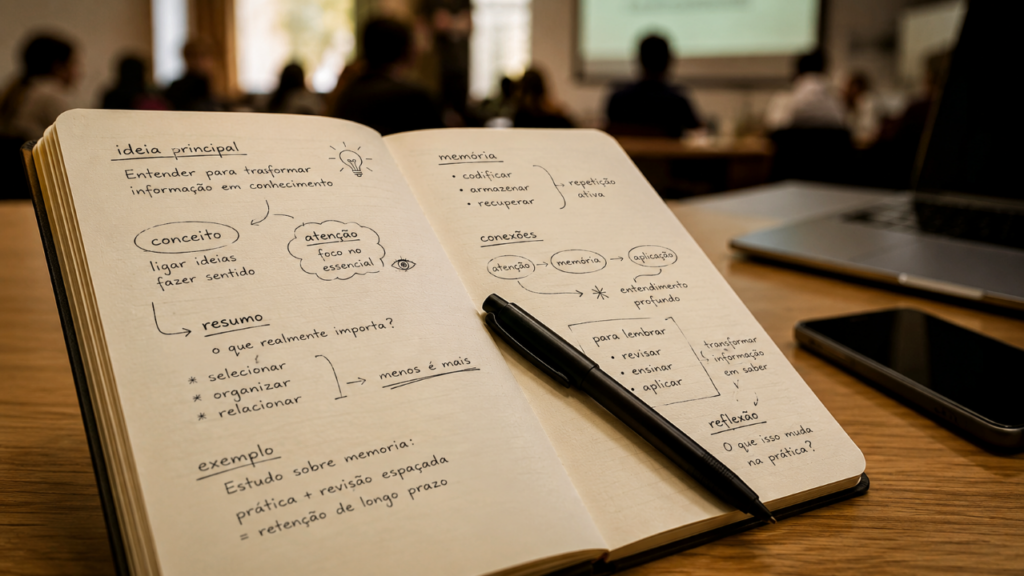 ideia principal
Entender para trasformar
informação em conhecimento
conceito
ligar ideias
fazer sentido
atenção
foco no
essencial
resumo
o que realmente importa?
* selecionar
* organizar
* relacionar
menos é mais
exemplo
Estudo sobre memoria:
prática + revisão espaçada
= retenção de longo prazo
memória
• codificar
• armazenar
• recuperar
repetição
ativa
conexões
atenção → memória → aplicação
entendimento
profundo
para lembrar
• revisar
• ensinar
• aplicar
transformar
informação
em saber
reflexão
O que isso muda
na prática?